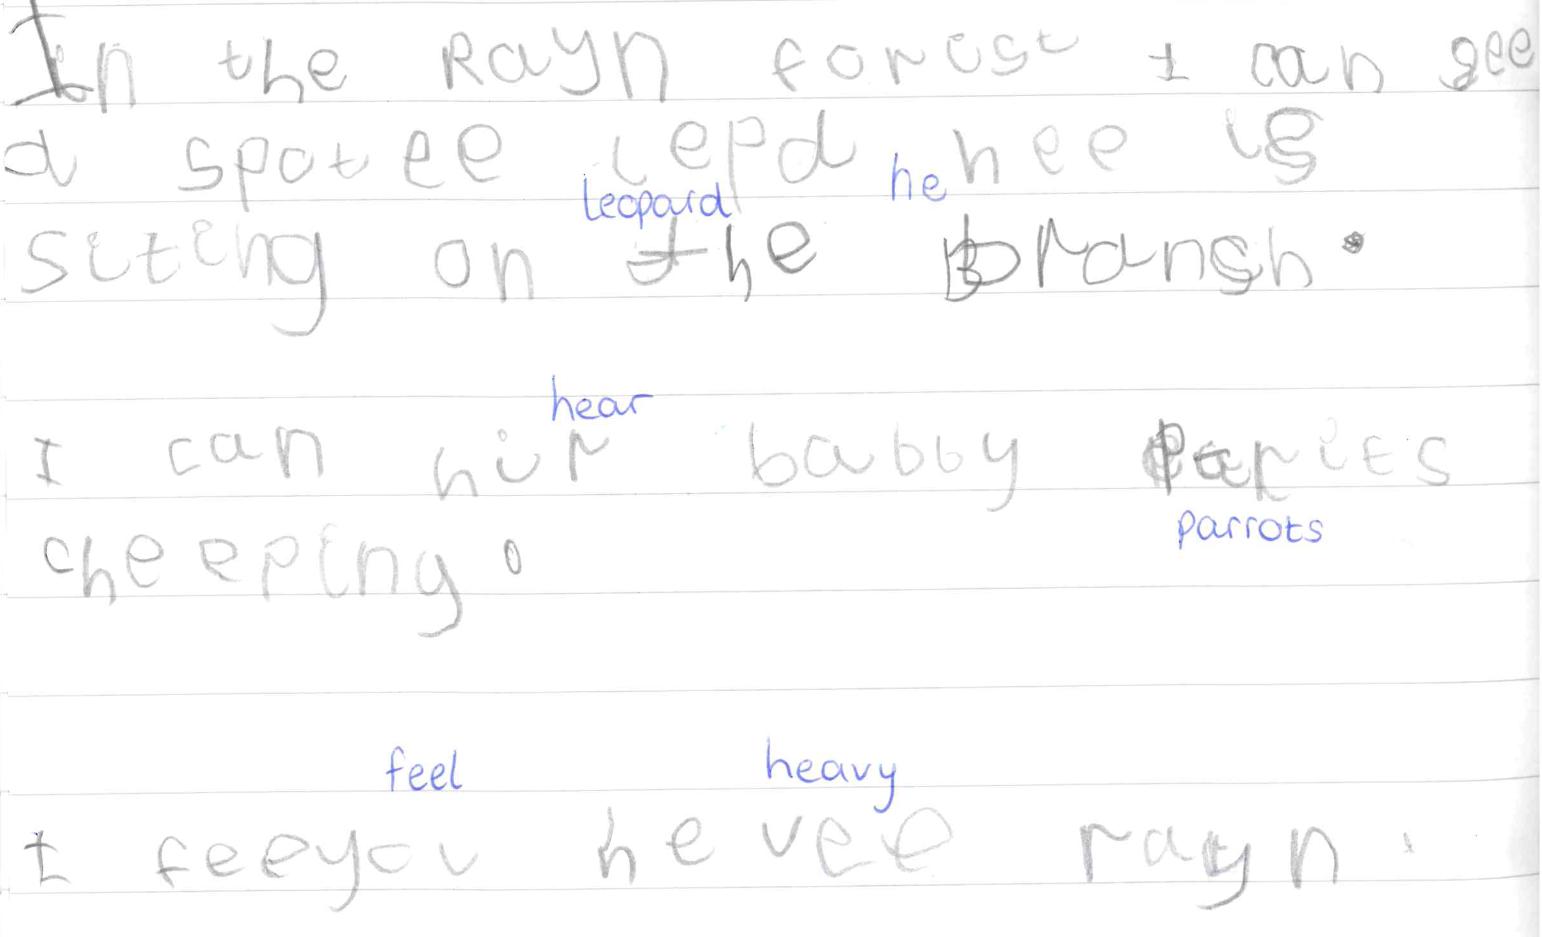 In the Rayn forist I can see
a spotee lepd hee is
leopard he
siting on the bransh.
hear
I can hir babby parits
parrots
cheeping.
feel heavy
I feeyou hevee rayn.